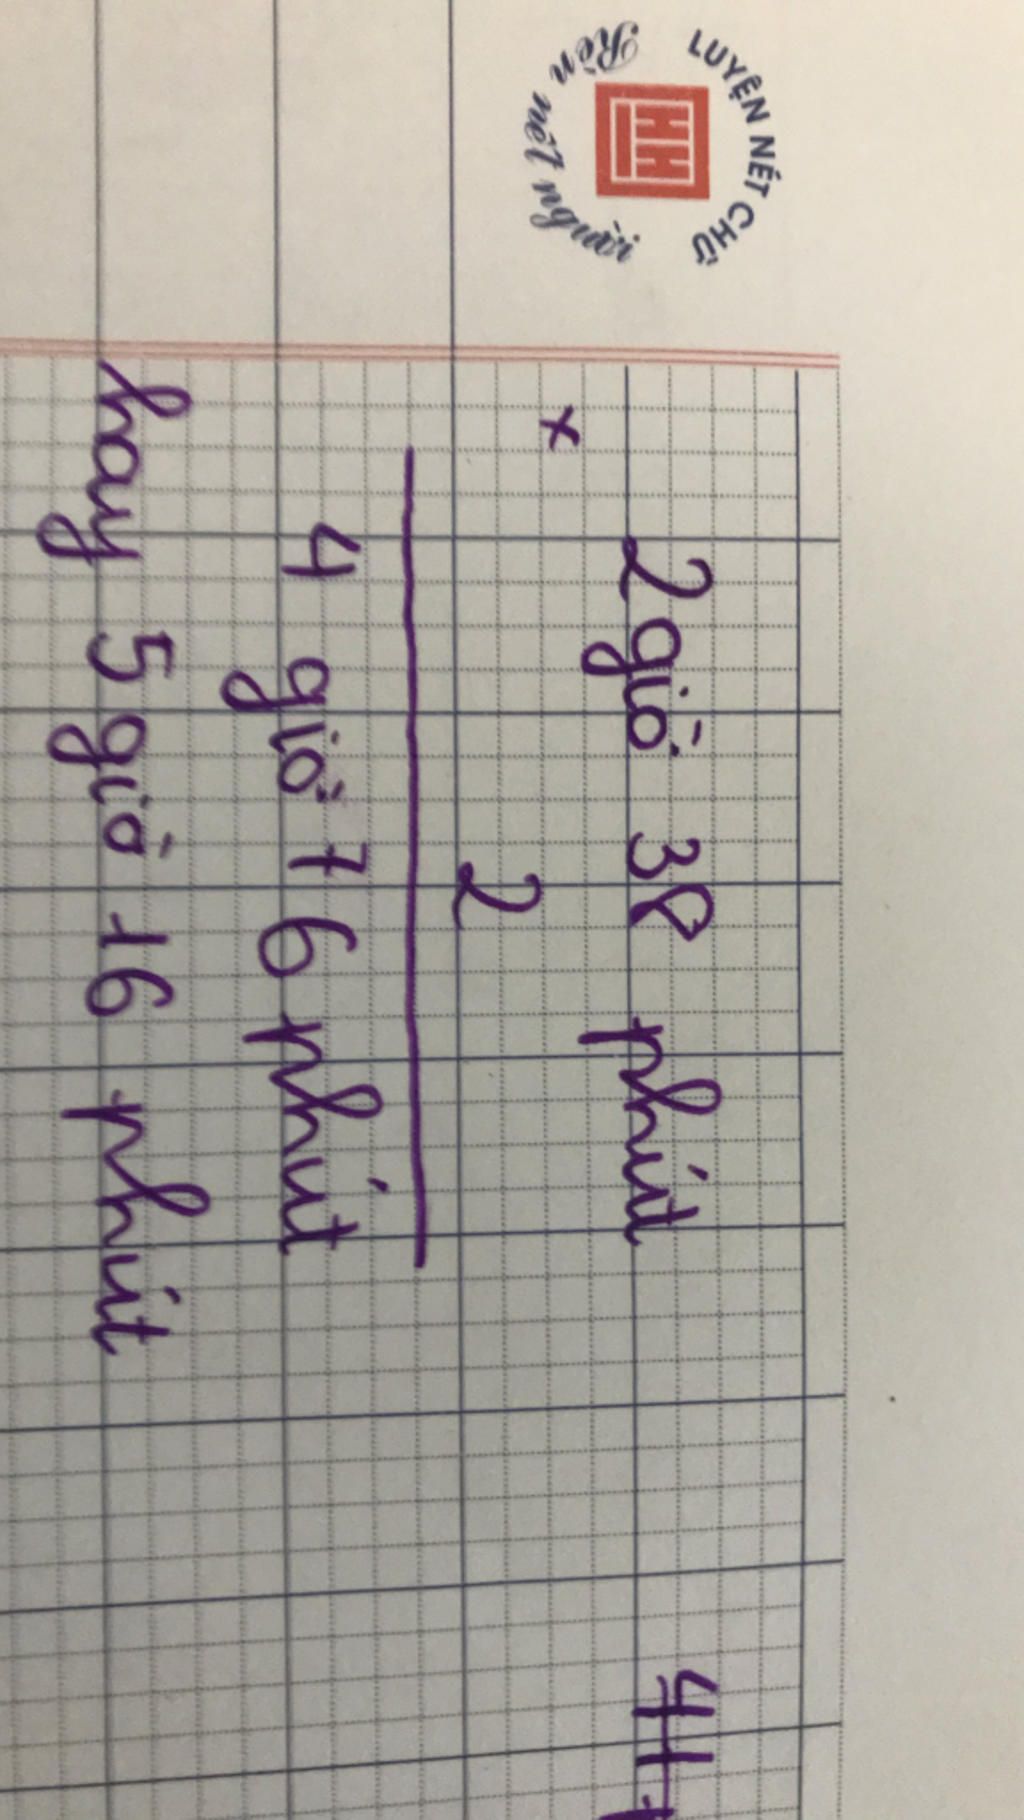 LUYỆN NÉT CHỮ
Rèn nết người
2 giờ 38 phút
x
2
4 giờ 76 phút
hay 5 giờ 16 phút